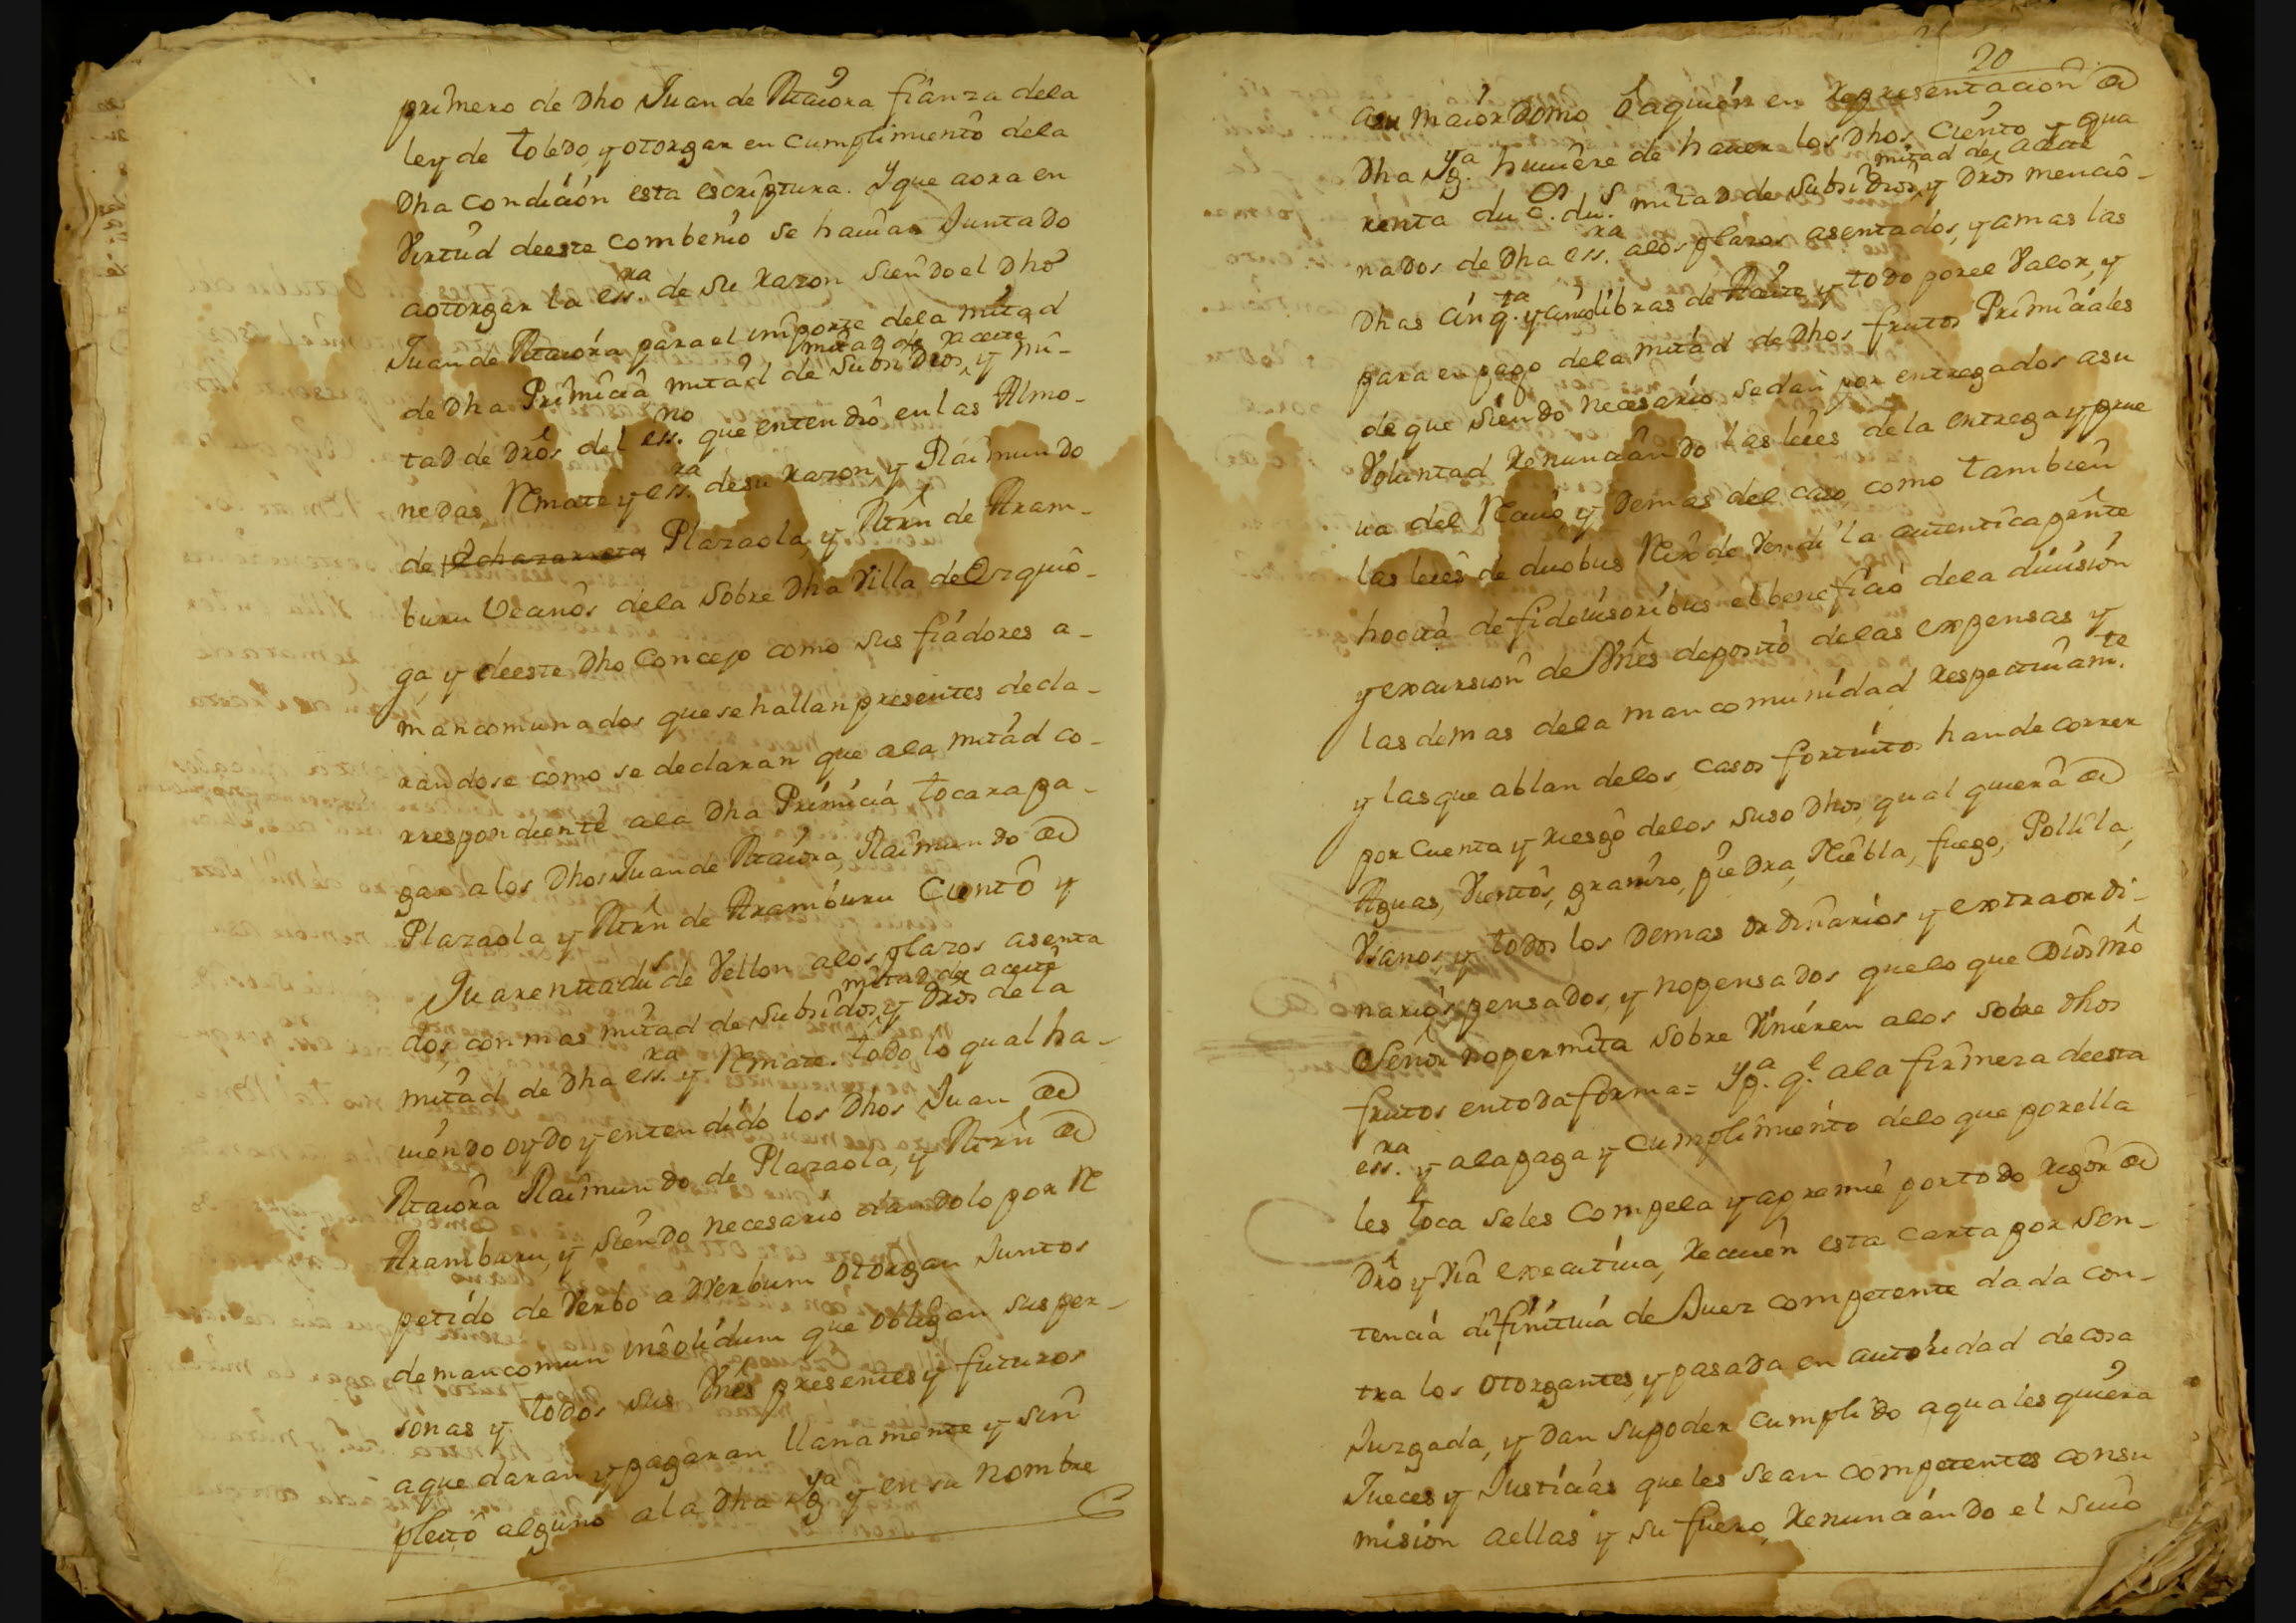 primero de Dho Juan de Ataiora fianza dela
ley de toledo, y otorgar en cumplimiento dela
Dha condición esta escriptura. Y que aora en
Virtud deeste combenio se hauian Juntado
aotorgar la ess.ra de su razon siendo el Dho
Juan de Ataiora para el importe dela mitad
mitad de xaceite
de Dha Primicia mitad de Subsidios, y mi-
tad de Dros del ess.no que entendio en las Almo-
nedas, Remate y ess.ra desu razon, y Raimundo
de Plazaola, y Attin de Aram-
buru Vecinos dela Sobre Dha Villa de Ozquio-
ga, y deeste Dho Concejo como sus fiadores a-
mancomunados que se hallan presentes decla-
randose como se declaran que ala mitad co-
rrespondiente ala Dha Primicia tocara pa-
gar a los Dhos Juan de Ataiora, Raimundo de
Plazaola y Attin de Aramburu Ciento y
Quarenta du.s de Vellon alos plazos asenta
mitad de aceite
dos, con mas mitad de Subsidios, y Dros de la
mitad de Dha ess.ra y Remate. todo lo qual ha-
uiendo oydo y entendido los Dhos Juan de
Ataiora Raimundo de Plazaola, y Attin de
Aramburu, y siendo necesario dandolo por Re
petido de Verbo a DVerbum otorgan Juntos
demancomun insolidum que obligan sus per-
sonas y todos sus Vnes presentes y futuros
aque daran y pagaran llanamente y sin
pleito alguno ala Dha Yg.a y en su nombre
20
asu maiordomo, o aquién en representacion de
Dha Yg.a huuiere de hauer los Dhos Ciento y qua
mitad de aceite
renta du.s mitad de Subsidios, y Dros mencio-
nados de Dha ess.ra alos plazos asentados, y amas las
Dhas cinq.ta y cinco libras de Aceite, y todo porel Valor, y
para en pago dela mitad de Dhos frutos Primiciales
de que siendo necesario sedan por entregados asu
Voluntad Renunciando las leies dela entrega y prue
ua del Reciuo, y Demas del caso, como tambien
las leies de duobus Reix de Vendi la autentica pnte
hocita defideiusoribus el beneficio dela diuision
y excursion de Vnes deposito delas expensas y
las demas dela mancomunidad respectiuam.te
y las que ablan delos casos fortuitos hande correr
por cuenta y riesgo delos suso Dhos, qual quiera de
Aguas, Vientos, granizo, piedra, Niebla, fuego, Polilla,
Vsanos, y todos los Demas ordinarios y extraordi-
narios, pensados, y nopensados quelo que Dios nro
Señor nopermita sobre Viniéren alos sobre Dhos
frutos entoda forma= Y p.a q.e ala firmeza deesta
ess.ra y ala paga y cumplimiento delo que porella
les toca seles Compela y apremie portodo rigor de
Dro y Via executiua, reciuén esta carta por sen-
tencia difinitiua de Juez competente dada con-
tra los otorgantes, y pasada en autoridad de cosa
Juzgada, y Dan supoder cumplido aqualesquiera
Jueces y Justicias queles sean competentes consu
mision aellas y su fuero, Renunciando el Suio